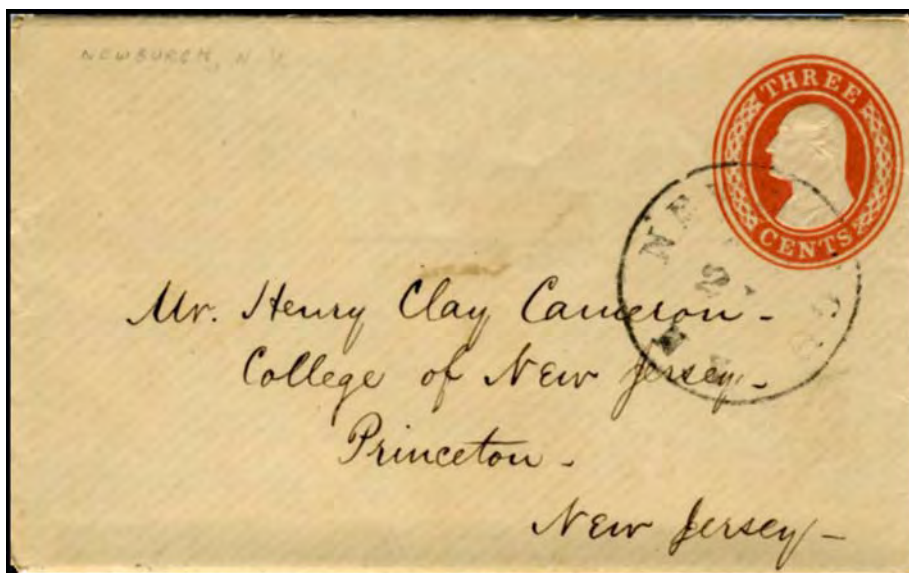 NEWBURGH, N Y
THREE
CENTS
Mr. Henry Clay Cameron -
College of New Jersey -
Princeton -
New Jersey -